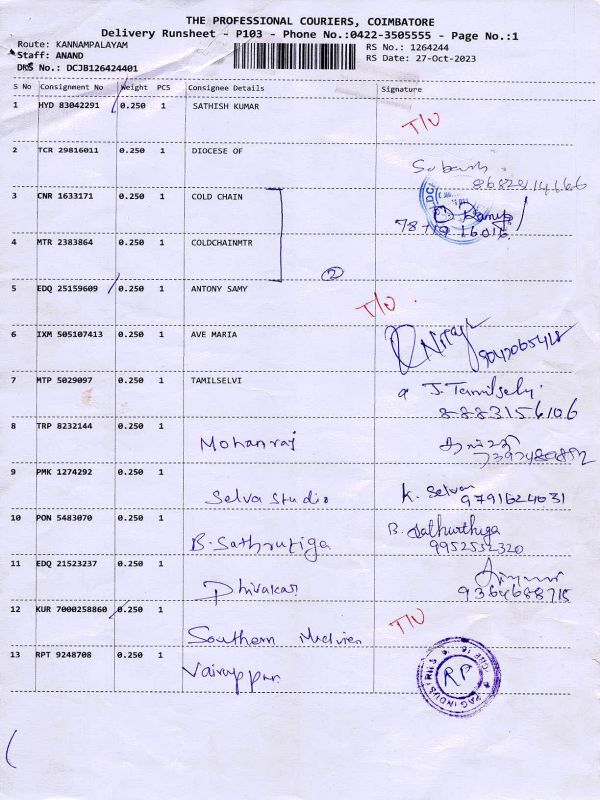 THE PROFESSIONAL COURIERS, COIMBATORE
Delivery Runsheet - P103 - Phone No.:0422-3505555 - Page No.:1
Route: KANNAMPALAYAM RS No.: 1264244
Staff: ANAND RS Date: 27-Oct-2023
DRS No.: DCJB126424401
S No Consignment No Weight PCS Consignee Details Signature
1 HYD 83042291 0.250 1 SATHISH KUMAR T/U
2 TCR 29816011 0.250 1 DIOCESE OF
3 CNR 1633171 0.250 1 COLD CHAIN
4 MTR 2383864 0.250 1 COLDCHAINMTR
2
5 EDQ 25159609 0.250 1 ANTONY SAMY T/U
6 IXM 505107413 0.250 1 AVE MARIA
7 MTP 5029097 0.250 1 TAMILSELVI J. Tamilselvi
8883156106
8 TRP 8232144 0.250 1 Mohanraj
9 PMK 1274292 0.250 1 Selva Studio K. Selvan
9791624031
10 PON 5483070 0.250 1 B. Sathrutiga B.
9952532320
11 EDQ 21523237 0.250 1 Dhivakar
9364688715
12 KUR 7000258860 0.250 1 Southern T/U
13 RPT 9248708 0.250 1 RP